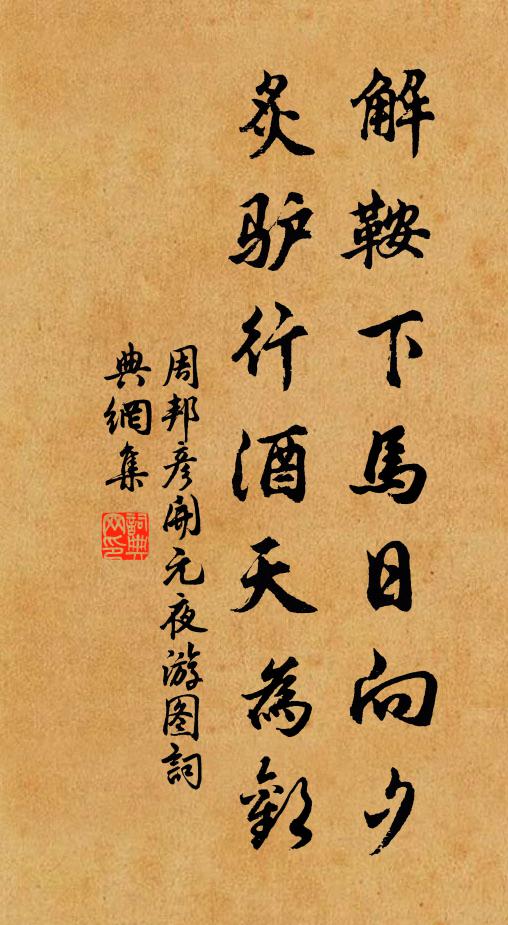 解鞍下馬日向夕
炙驴行酒天為歡
周邦彦開元夜游图詞
典網集
詞典
网印